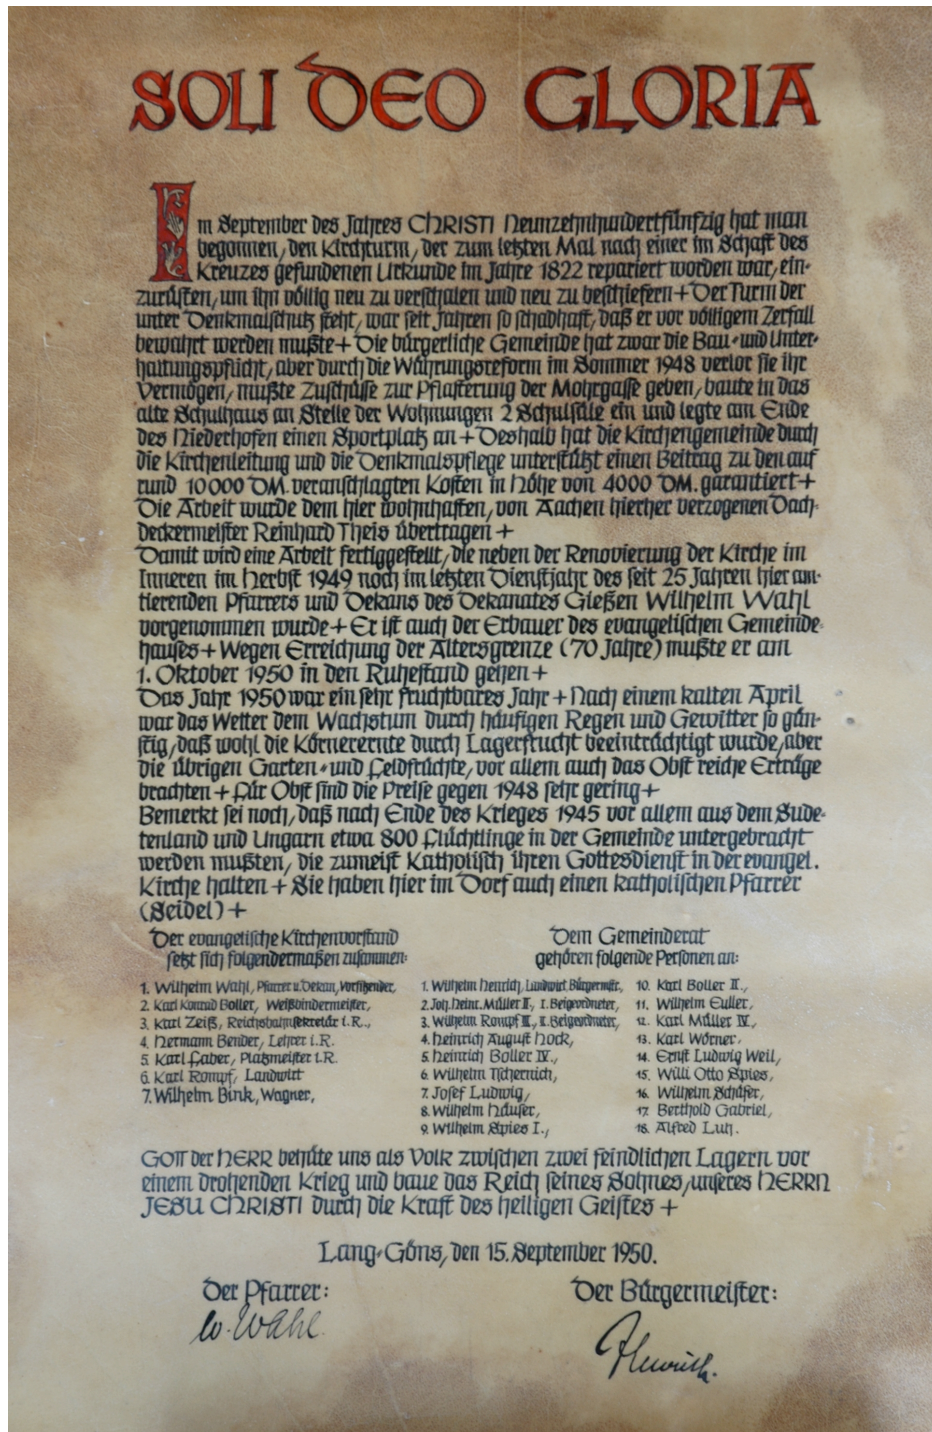 SOLI DEO GLORIA
Im September des Jahres CHRISTI Neunzehnhundertfünfzig hat man
begonnen, den Kirchturm, der zum letzten Mal nach einer im Schaft des
Kreuzes gefundenen Urkunde im Jahre 1822 repariert worden war, ein-
zurüsten, um ihn völlig neu zu verschalen und neu zu beschiefern + Der Turm der
unter Denkmalschutz steht, war seit Jahren so schadhaft, daß er vor völligem Zerfall
bewahrt werden mußte + Die bürgerliche Gemeinde hat zwar die Bau- und Unter-
haltungspflicht, aber durch die Währungsreform im Sommer 1948 verlor sie ihr
Vermögen, mußte Zuschüsse zur Pflasterung der Mohrgasse geben, baute in das
alte Schulhaus an Stelle der Wohnungen 2 Schulsäle ein und legte am Ende
des Niederhofen einen Sportplatz an + Deshalb hat die Kirchengemeinde durch
die Kirchenleitung und die Denkmalspflege unterstützt einen Beitrag zu den auf
rund 10000 DM. veranschlagten Kosten in Höhe von 4000 DM. garantiert +
Die Arbeit wurde dem hier wohnhaften, von Aachen hierher verzogenen Dach-
deckermeister Reinhard Theis übertragen +
Damit wird eine Arbeit fertiggestellt, die neben der Renovierung der Kirche im
Inneren im Herbst 1949 noch im letzten Dienstjahr des seit 25 Jahren hier am-
tierenden Pfarrers und Dekans des Dekanates Gießen Wilhelm Wahl
vorgenommen wurde + Er ist auch der Erbauer des evangelischen Gemeinde-
hauses + Wegen Erreichung der Altersgrenze (70 Jahre) mußte er am
1. Oktober 1950 in den Ruhestand gehen +
Das Jahr 1950 war ein sehr fruchtbares Jahr + Nach einem kalten April
war das Wetter dem Wachstum durch häufigen Regen und Gewitter so gün-
stig, daß wohl die Körnerernte durch Lagerfrucht beeinträchtigt wurde, aber
die übrigen Garten- und Feldfrüchte, vor allem auch das Obst reiche Erträge
brachten + Für Obst sind die Preise gegen 1948 sehr gering +
Bemerkt sei noch, daß nach Ende des Krieges 1945 vor allem aus dem Sude-
tenland und Ungarn etwa 800 Flüchtlinge in der Gemeinde untergebracht
werden mußten, die zumeist Katholisch ihren Gottesdienst in der evangel.
Kirche halten + Sie haben hier im Dorf auch einen katholischen Pfarrer
(Seidel) +
Der evangelische Kirchenvorstand
setzt sich folgendermaßen zusammen:
1. Wilhelm Wahl, Pfarrer u. Dekan, Vorsitzender,
2. Karl Konrad Boller, Weißbindermeister,
3. Karl Zeiß, Reichsbahnsekretär i. R.,
4. Hermann Bender, Lehrer i. R.
5. Karl Faber, Platzmeister i. R.
6. Karl Rompf, Landwirt
7. Wilhelm Bink, Wagner,
Dem Gemeinderat
gehören folgende Personen an:
1. Wilhelm Henrich, Landwirt, Bürgermstr.,
2. Joh. Heinr. Müller II, I. Beigeordneter,
3. Wilhelm Rompf III, II. Beigeordneter,
4. Heinrich August Hock,
5. Heinrich Boller IV.,
6. Wilhelm Tschernich,
7. Josef Ludwig,
8. Wilhelm Häuser,
9. Wilhelm Spies I.,
10. Karl Boller II.,
11. Wilhelm Euller,
12. Karl Müller IV.,
13. Karl Wörner,
14. Ernst Ludwig Weil,
15. Willi Otto Spies,
16. Wilhelm Schäfer,
17. Berthold Gabriel,
18. Alfred Luh.
GOTT der HERR behüte uns als Volk zwischen zwei feindlichen Lagern vor
einem drohenden Krieg und baue das Reich seines Sohnes, unseres HERRN
JESU CHRISTI durch die Kraft des heiligen Geistes +
Lang-Göns, den 15. September 1950.
Der Pfarrer:
W. Wahl.
Der Bürgermeister:
Henrich.